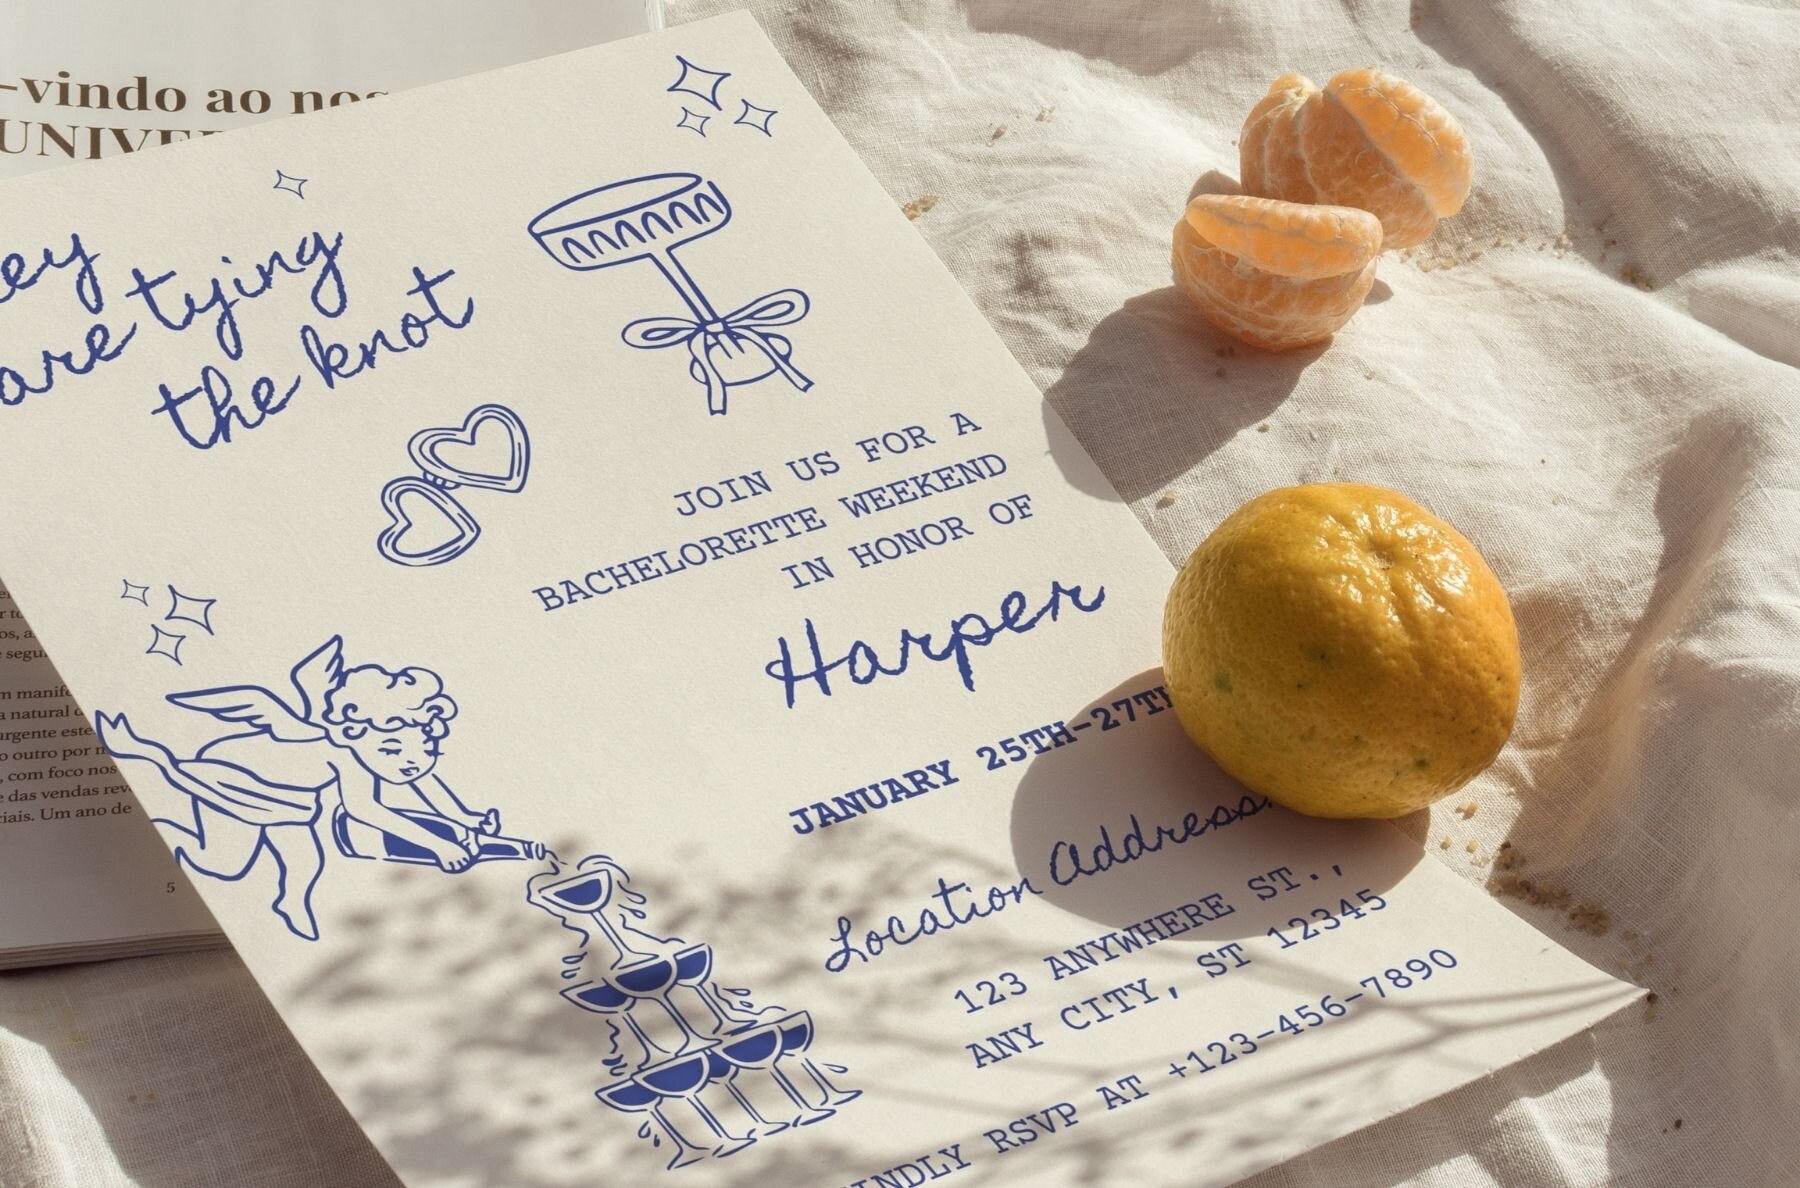 -vindo ao nos
UNIVER
ey
are tying
the knot
JOIN US FOR A
BACHELORETTE WEEKEND
IN HONOR OF
Harper
JANUARY 25TH-27TH
Location Address
123 ANYWHERE ST.,
ANY CITY, ST 12345
INDLY RSVP AT +123-456-7890
m manife
a natural d
urgente este
o outro por m
, com foco nos
e das vendas rev
ciais. Um ano de
5